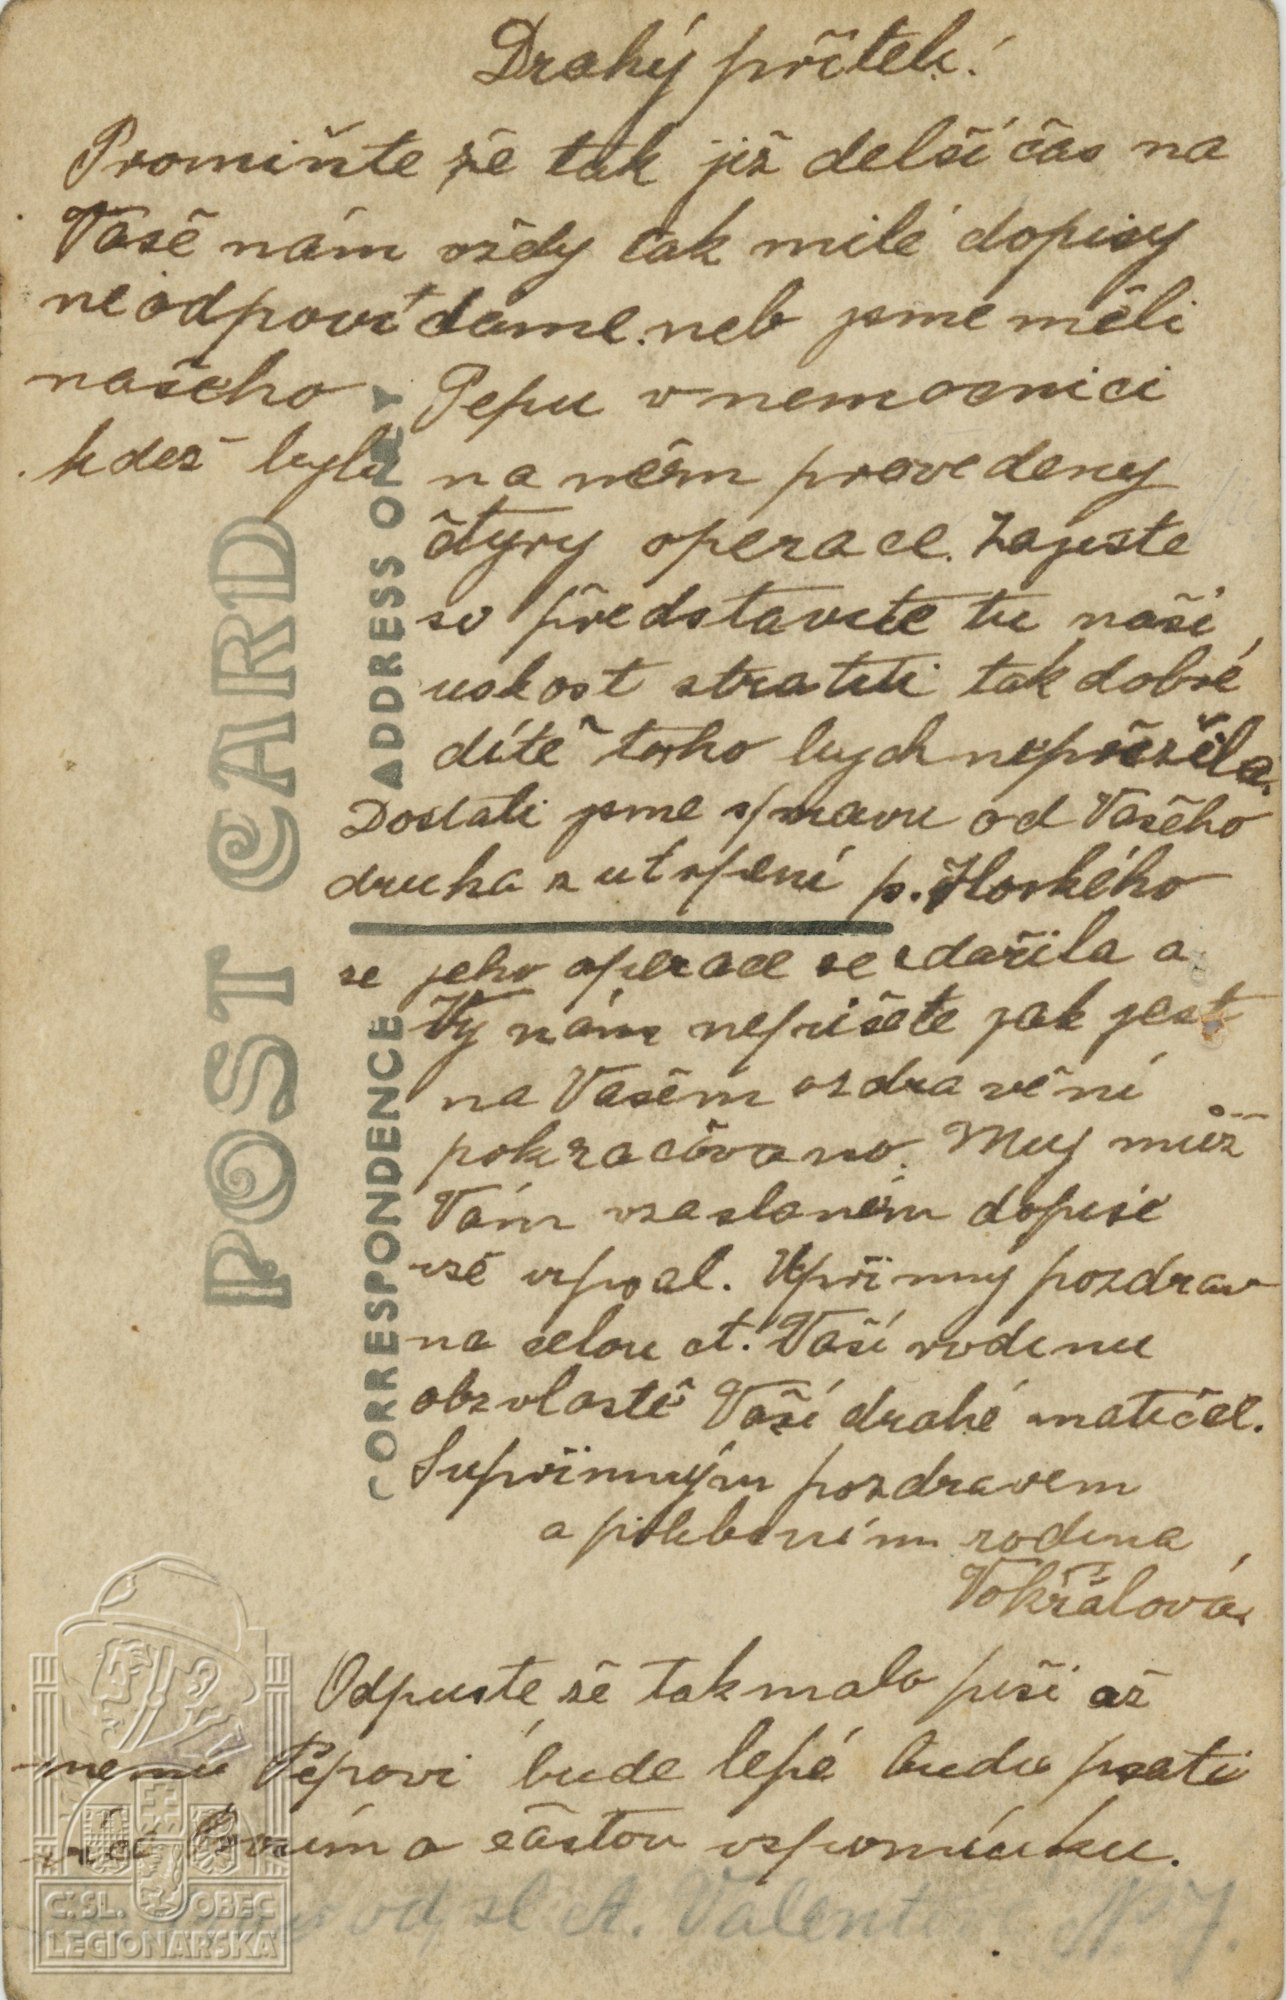 Drahý příteli!
Promiňte že tak již delší čas na
Vaše nám vždy tak milé dopisy
neodpovídáme. neb jsme měli
našeho Pepu v nemocnici
kdež byly na něm provedeny
čtyry operace. Zajiste
si představite tu naši
uskost stratiti tak dobré
dítě toho bych nepřežila.
Dostali jsme spravu od Vašeho
druha z utrpení p. Horkého
se jeho operace se zdařila a
Vy nám nepišete jak jest
na Vašem ozdravění
pokračováno. Muj můž
Vám vzaslaném dopise
vše vypsal. Upřimny pozdrav
na celou ct. Vaší rodinu
obzvlastě Vaší drahé matičce.
Supřimným pozdravem
a políbením rodina
Vokřálová.
Odpuste že tak malo piši až
memu Pepovi bude lépé budu psati
více Prosím o častou vzpomínku.
od sl. A. Valentové N.J.
POST CARD
CORRESPONDENCE
ADDRESS ONLY
Č.SL. OBEC
LEGIONÁŘSKÁ